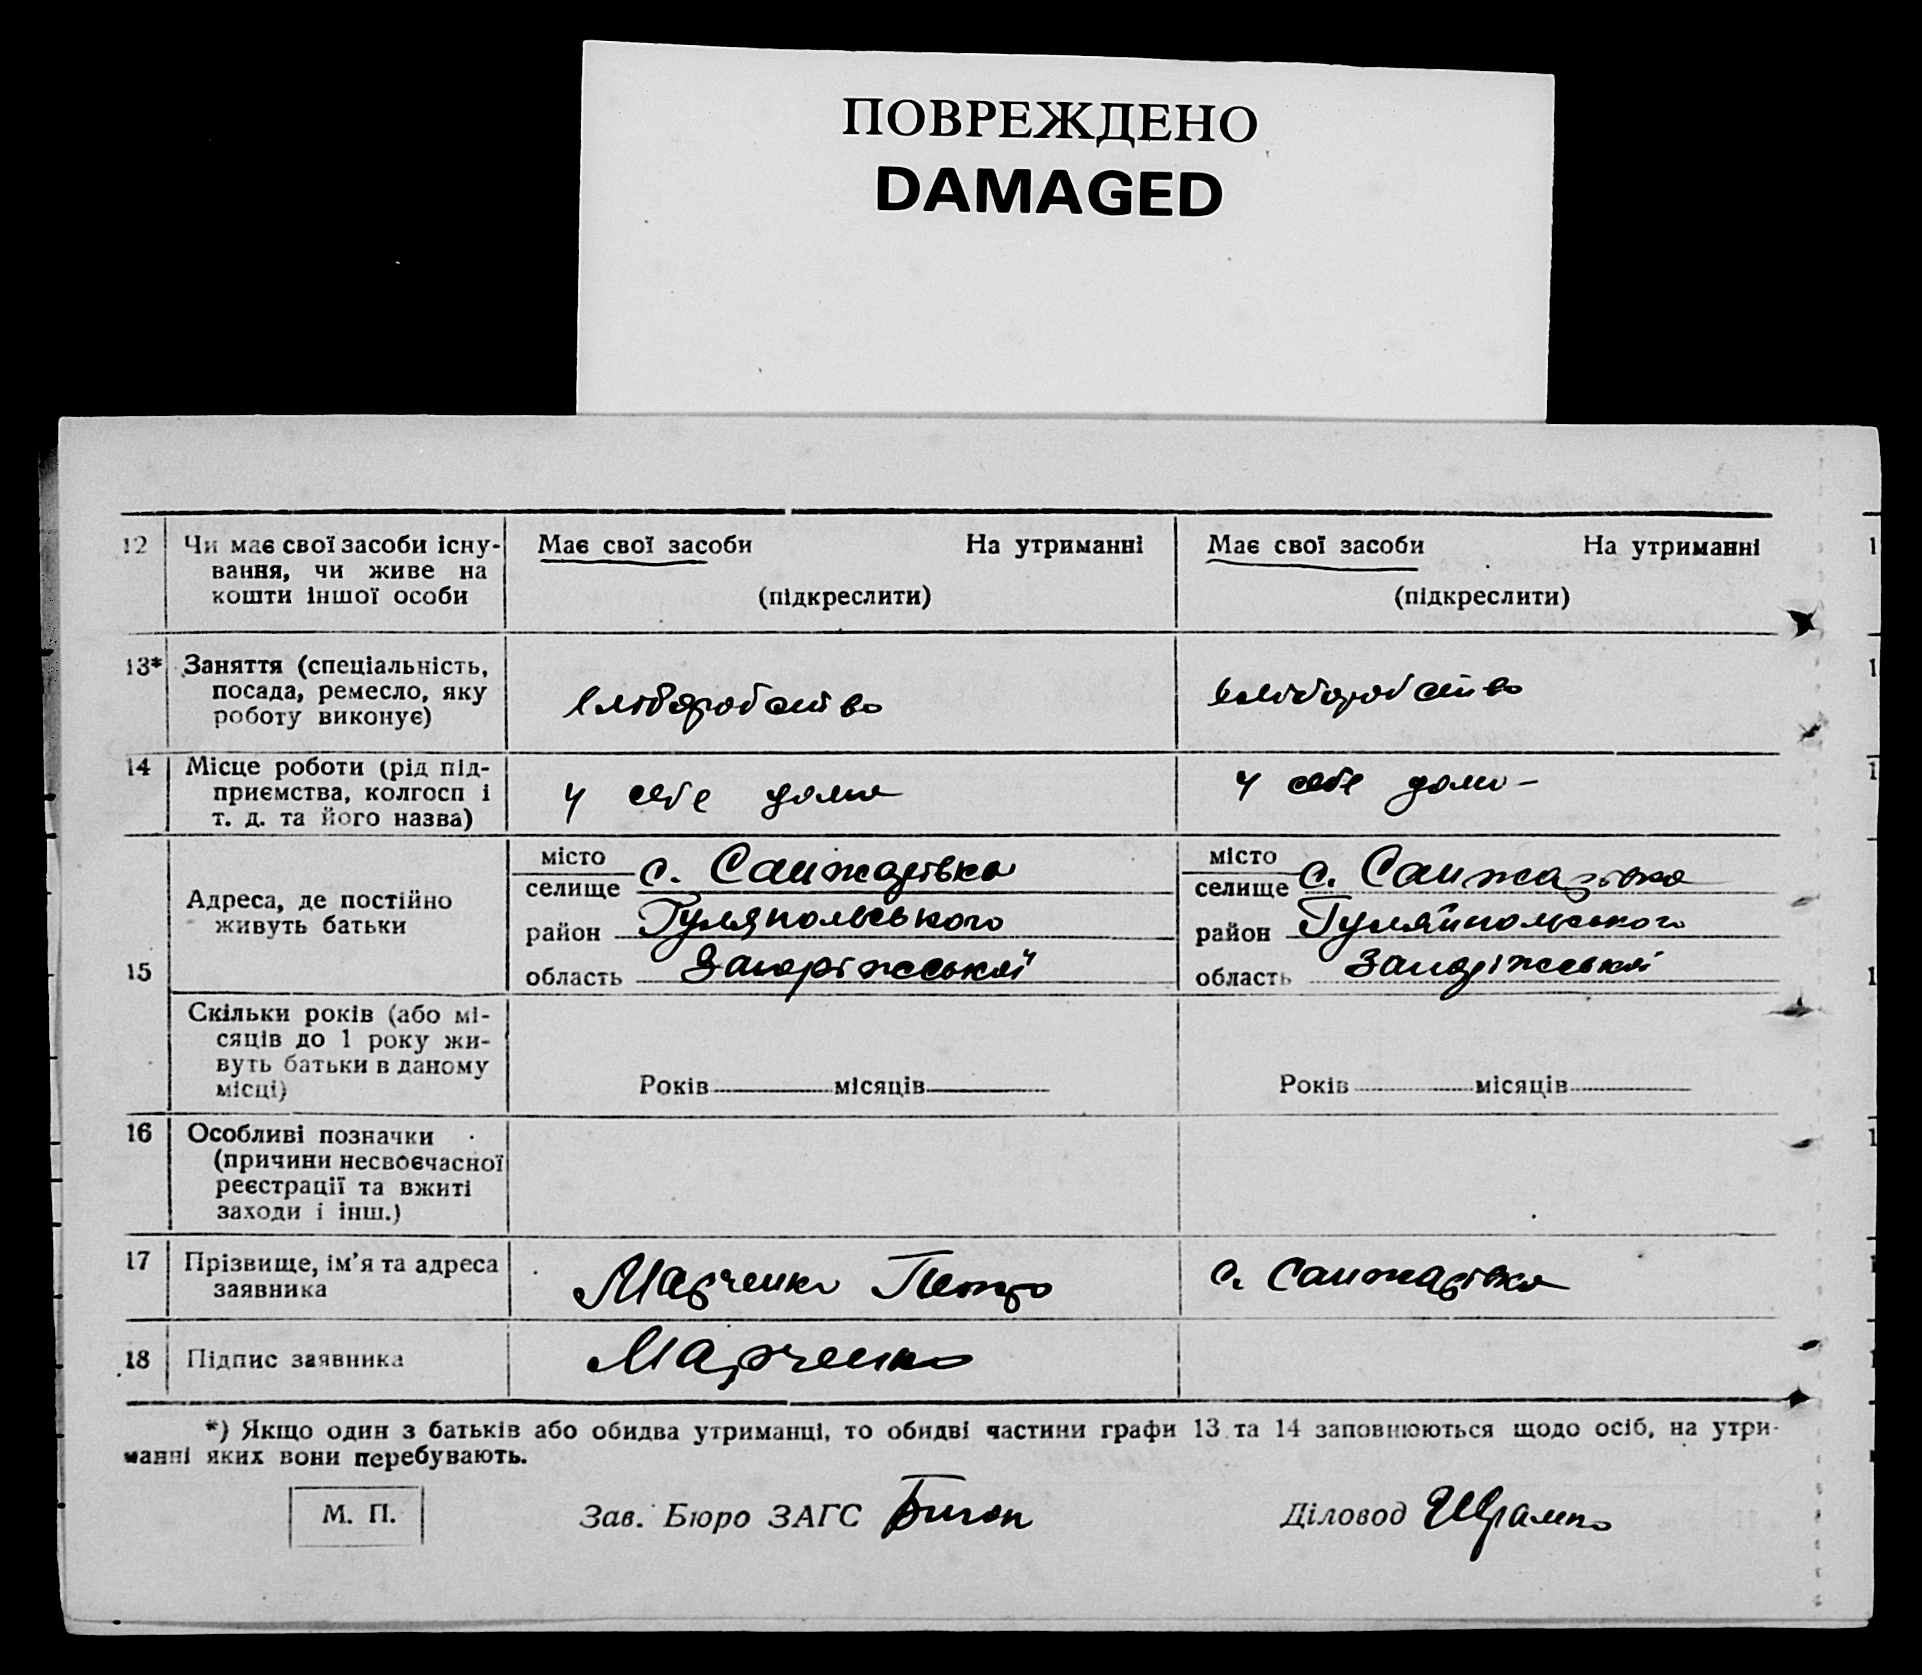 ПОВРЕЖДЕНО
DAMAGED
12 Чи має свої засоби існу-
вання, чи живе на
кошти іншої особи
Має свої засоби На утриманні
(підкреслити)
Має свої засоби На утриманні
(підкреслити)
13* Заняття (спеціальність,
посада, ремесло, яку
роботу виконує)
хліборобство
хліборобство
14 Місце роботи (рід під-
приємства, колгосп і
т. д. та його назва)
у себе дома
у себе дома
15
Адреса, де постійно
живуть батьки
місто
селище с. Санжарівка
район Гуляпольського
область Запоріжської
місто
селище с. Санжарівка
район Гуляйпольського
область Запоріжської
Скільки років (або мі-
сяців до 1 року жи-
вуть батьки в даному
місці)
Років місяців
Років місяців
16 Особливі позначки
(причини несвоєчасної
реєстрації та вжиті
заходи і інш.)
17 Прізвище, ім’я та адреса
заявника
Марченко Петро
с. Санжарівка
18 Підпис заявника
Марченко
*) Якщо один з батьків або обидва утриманці, то обидві частини графи 13 та 14 заповнюються щодо осіб, на утри-
манні яких вони перебувають.
М. П.
Зав. Бюро ЗАГС
Діловод